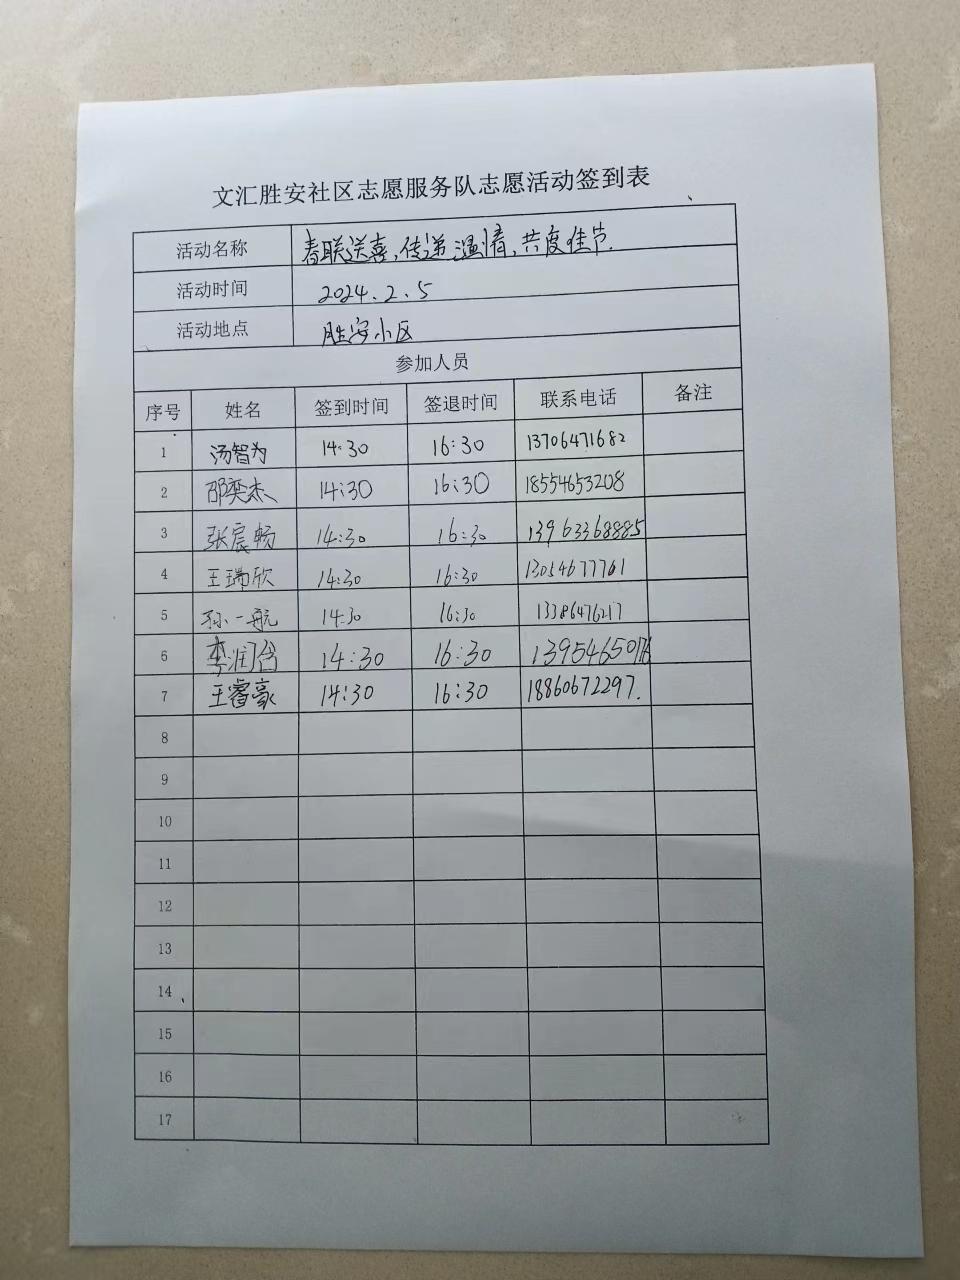 文汇胜安社区志愿服务队志愿活动签到表
活动名称 春联送喜,传递温情,共度佳节.
活动时间 2024.2.5
活动地点 胜安小区
参加人员
序号 姓名 签到时间 签退时间 联系电话 备注
1 汤智为 14:30 16:30 13706471682
2 邵奕杰 14:30 16:30 18554653208
3 张宸畅 14:30 16:30 13963368885
4 王瑞欣 14:30 16:30 13054677761
5 孙一航 14:30 16:30 13386476217
6 李润 14:30 16:30
7 王睿豪 14:30 16:30 18860672297.
8
9
10
11
12
13
14
15
16
17